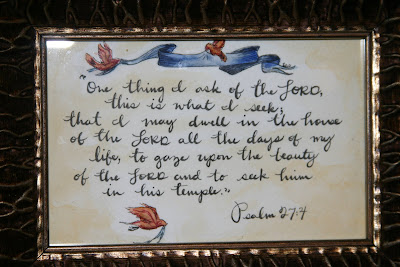 "One thing I ask of the LORD,
this is what I seek;
that I may dwell in the house
of the LORD all the days of my
life, to gaze upon the beauty
of the LORD and to seek him
in his temple."
Psalm 27:4